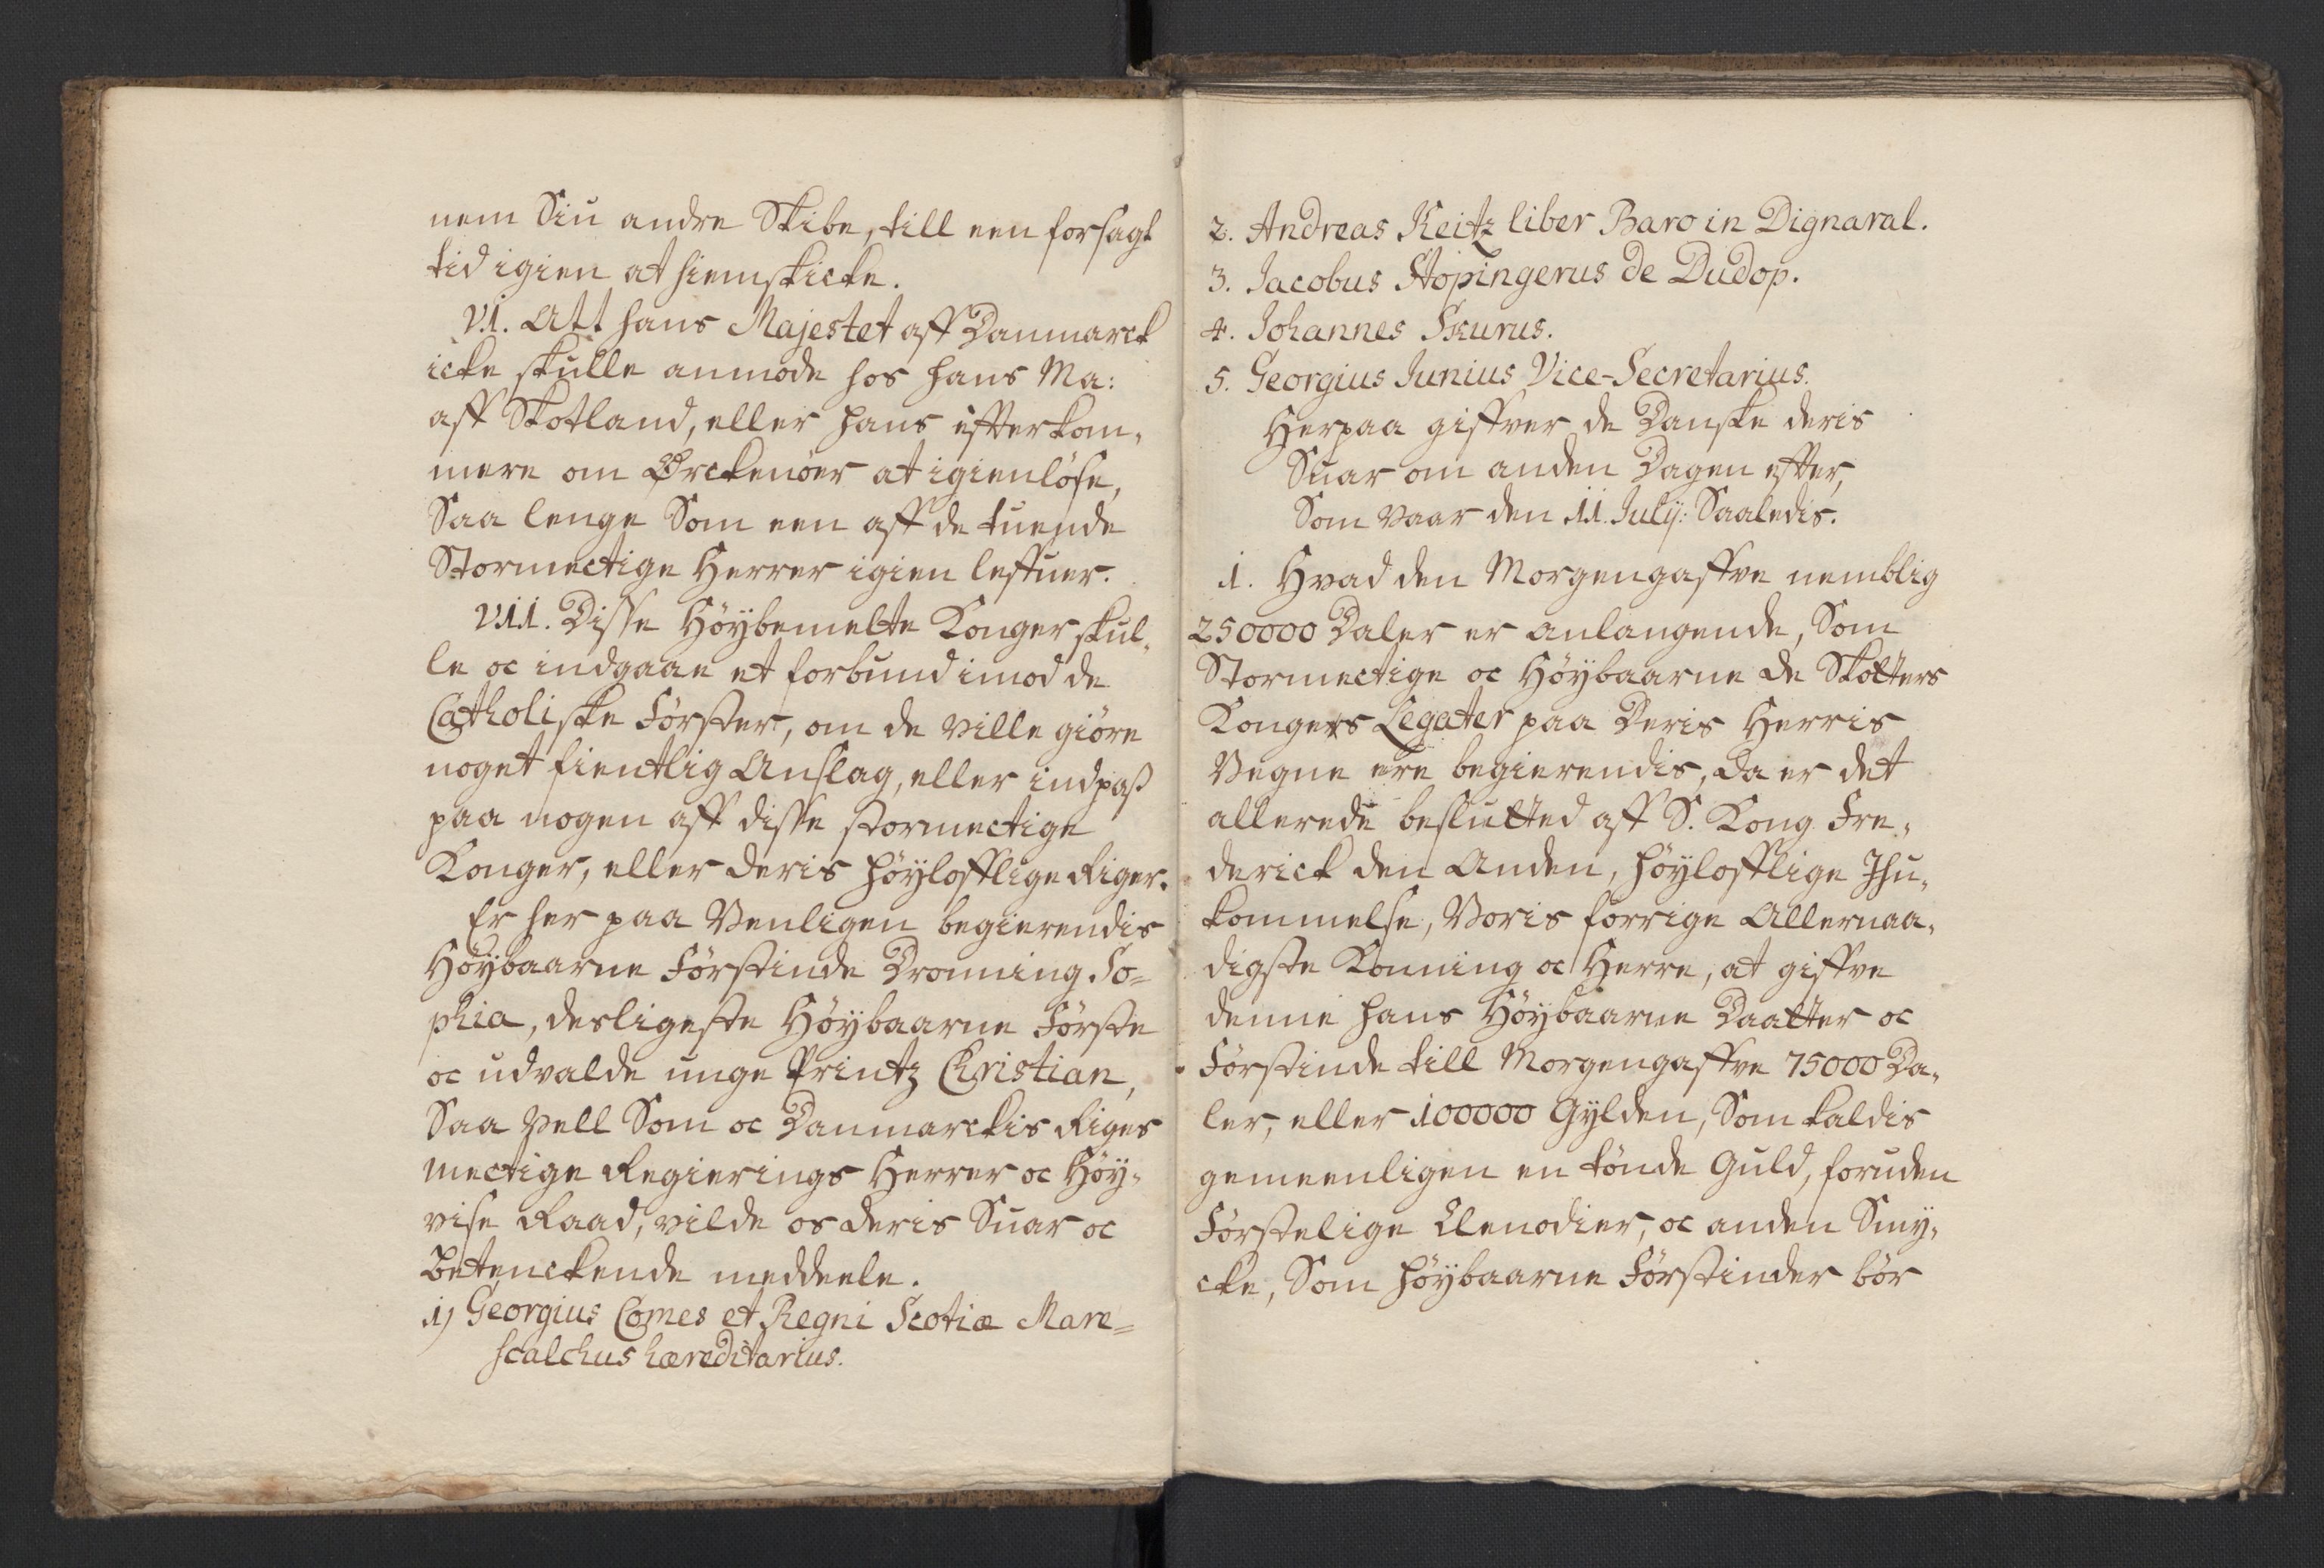 nem Siu andre Skibe, till een forsagt
tid igien at hiemskicke.
VI. Att hans Majestet aff Danmarck
icke skulle anmode hos hans Ma:
aff Skotland, eller hans effterkom-
mere om Ørckenöer at igienlöse,
Saa lenge Som een aff de tuende
Stormectige Herrer igien leffuer.
VII. Disse Höybemelte Konger skul-
le oc indgaae et forbund imod de
Catholiske Förster, om de ville giöre
noget fientlig Anslag, eller indpaß
paa nogen aff disse stormectige
Konger, eller deris höylofflige Riger.
Er her paa Venligen begierendis
Höybaarne Förstinde Dronning So=
phia, desligeste Höybaarne Förste
oc udvalde unge Printz Christian,
Saa Vell Som oc Danmarckis Riges
mectige Regierings Herrer oc Höy-
vise Raad, vilde os deris Suar oc
Betenckende meddeele.
1) Georgius Comes et Regni Scotiæ Mare=
scalchus hæreditarius.
2. Andreas Keitz liber Baro in Dignaral.
3. Jacobus Stopingerus de Dudop.
4. Johannes Skurus.
5. Georgius Junius Vice-Secretarius.
Herpaa giffver de Danske deris
Suar om anden Dagen effter,
Som Vaar den 11. Julij: Saaledis.
1. Hvad den Morgengaffve nemblig
250000 Daler er anlangende, Som
Stormectige oc Höybaarne de Skotters
Kongers Legater paa Deris Herris
Vegne ere begierendis, da er det
allerede beslutted aff S. Kong Fre-
derick den Anden, höylofflige Ihu-
kommelse, Voris forrige Allernaa-
digste Konning oc Herre, at giffve
denne hans Höybaarne Daatter oc
Förstinde till Morgengaffve 75000 Da-
ler, eller 100000 Gylden, Som kaldis
gemeenligen en tönde Guld, foruden
Förstelige Clenodier, oc anden Smy-
cke, Som höybaarne Förstinder bör